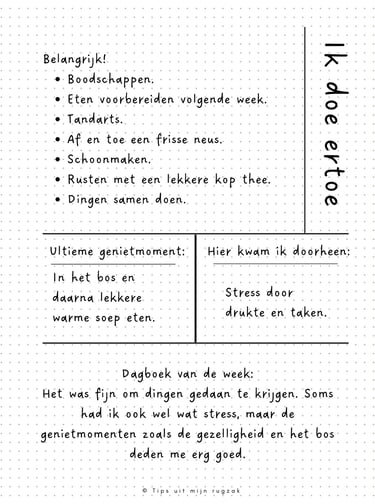 Belangrijk!
• Boodschappen.
• Eten voorbereiden volgende week.
• Tandarts.
• Af en toe een frisse neus.
• Schoonmaken.
• Rusten met een lekkere kop thee.
• Dingen samen doen.
Ik doe ertoe
Ultieme genietmoment:
In het bos en
daarna lekkere
warme soep eten.
Hier kwam ik doorheen:
Stress door
drukte en taken.
Dagboek van de week:
Het was fijn om dingen gedaan te krijgen. Soms
had ik ook wel wat stress, maar de
genietmomenten zoals de gezelligheid en het bos
deden me erg goed.
© Tips uit mijn rugzak